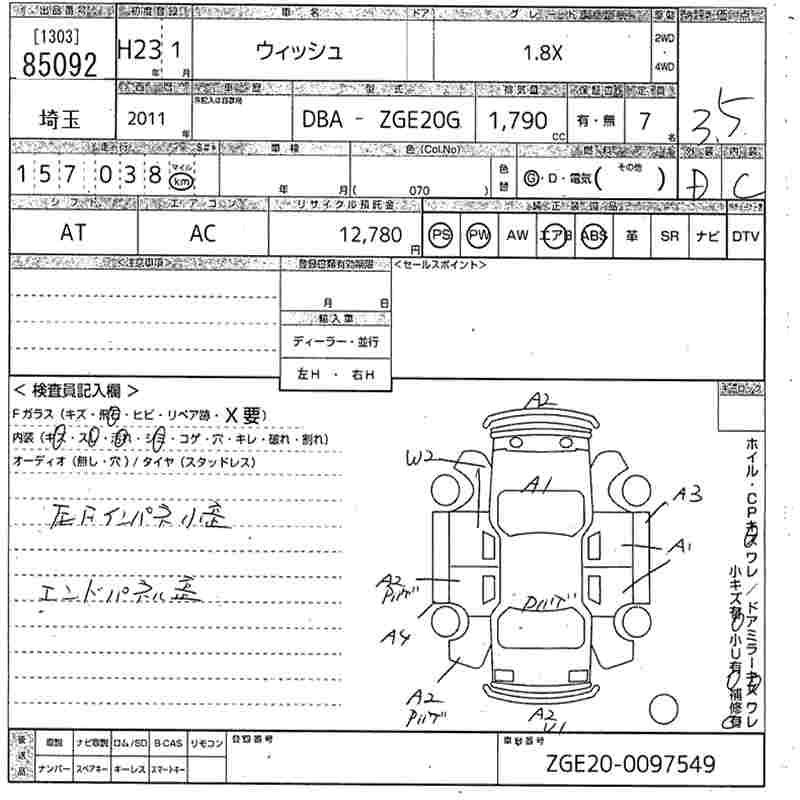 出品番号 初度登録 車名 ドア グレード 駆動
[1303]
85092
H23年 1月
ウィッシュ
1.8X
2WD
・
4WD
3.5
埼玉
西暦 車歴 型式 排気量 保証書 定員
未記入は自家用
2011年
DBA - ZGE20G
1,790 cc
有・無
7名
走行 車検 色(Col.No) 燃料 外装 内装
157038 マイル km
年 月
( 070 )
色替
G・D・電気( その他 )
D
C
シフト エアコン リサイクル預託金 純正装備品
AT
AC
12,780円
PS PW AW エアB ABS 革 SR ナビ DTV
<注意事項>
登録書類有効期限
<セールスポイント>
月 日
輸入車
ディーラー・並行
左H ・ 右H
< 検査員記入欄 >
Fガラス(キズ・飛石・ヒビ・リペア跡・X要)
内装(キズ・スレ・汚れ・シミ・コゲ・穴・キレ・破れ・割れ)
オーディオ(無し・穴)/タイヤ(スタッドレス)
左Fインパネル歪
エンドパネル歪
A2
W2
A1
A3
A1
A2
A4
A2
A2
ホイル・CPキズワレ/ドアミラーキズワレ
小キズ有 小U有 補修有
後送品
取説 ナビ取説 ロム/SD B-CAS リモコン
ナンバー スペアキー キーレス スマートキー
登録番号
車台番号
ZGE20-0097549